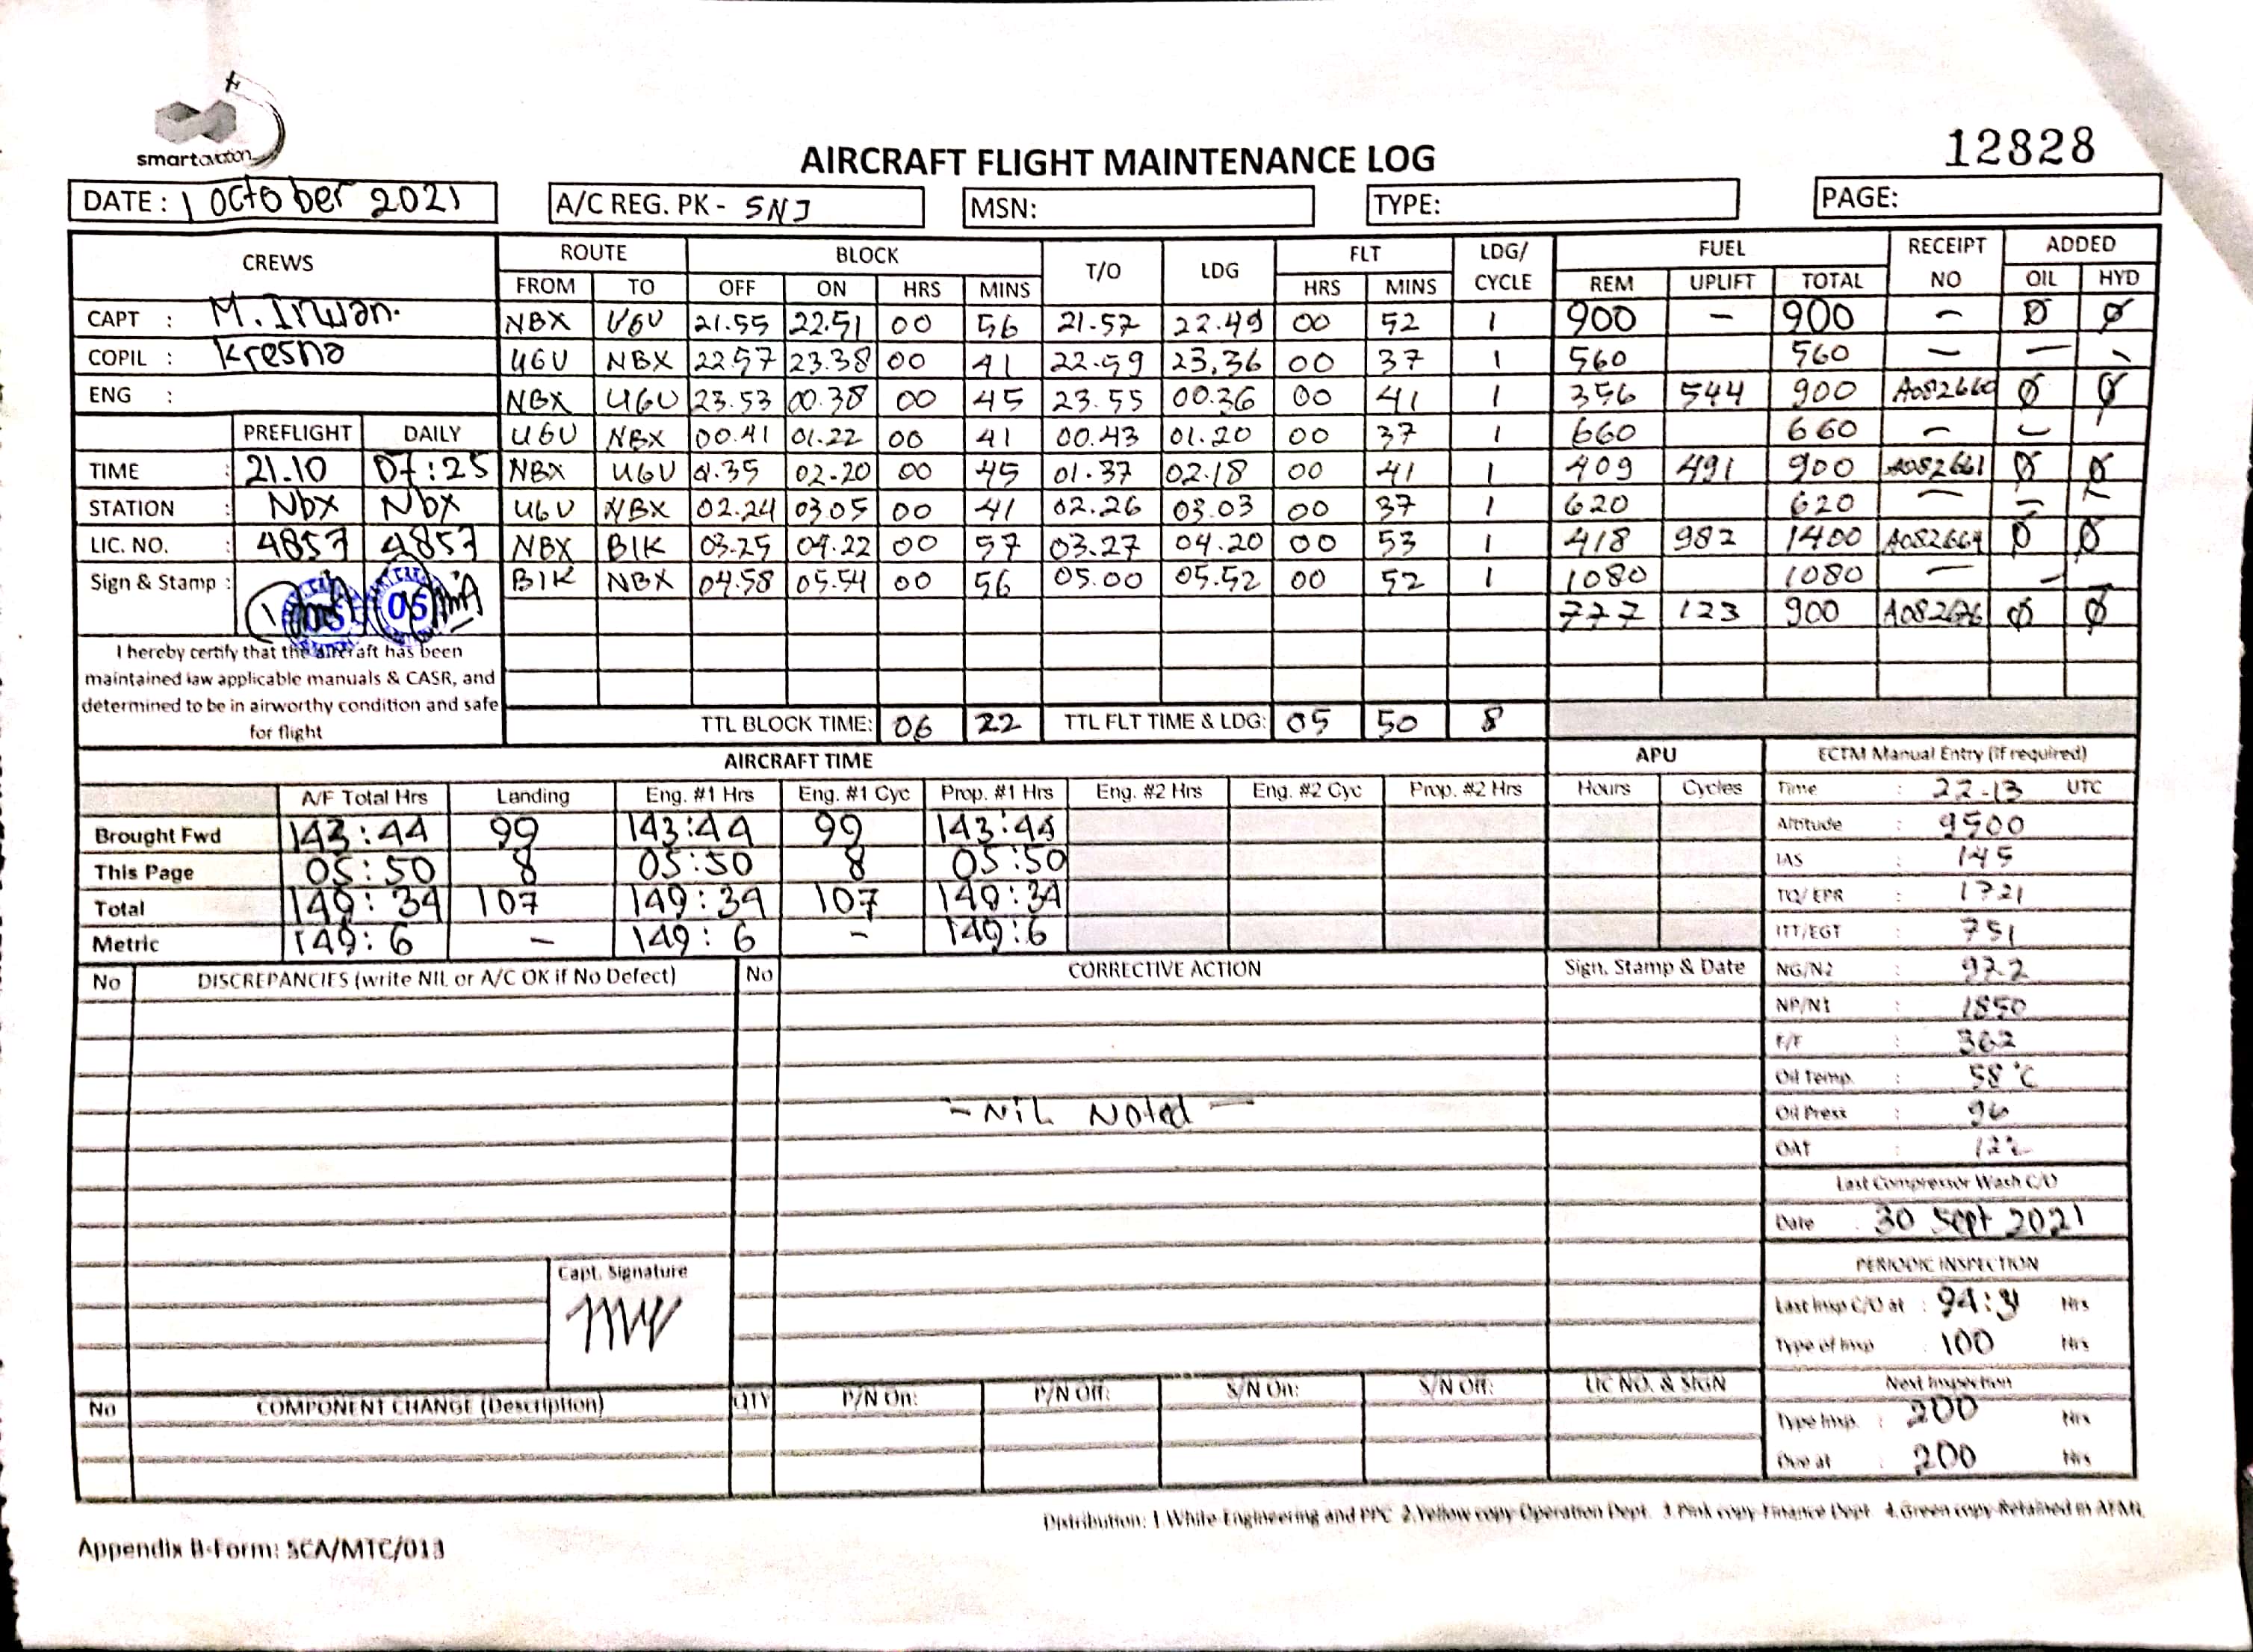 smartaviation
AIRCRAFT FLIGHT MAINTENANCE LOG
12828
DATE : 1 October 2021
A/C REG. PK - SNJ
MSN:
TYPE:
PAGE:
CREWS ROUTE BLOCK T/O LDG FLT LDG/ CYCLE FUEL RECEIPT NO ADDED
FROM TO OFF ON HRS MINS HRS MINS REM UPLIFT TOTAL OIL HYD
CAPT : M. Irwan. NBX UGU 21.55 22.51 00 56 21.57 22.49 00 52 1 900 – 900 – Ø Ø
COPIL : Kresna UGU NBX 22.57 23.38 00 41 22.59 23.36 00 37 1 560 560 – – –
ENG : NBX UGU 23.53 00.38 00 45 23.55 00.36 00 41 1 356 544 900 A082660 Ø Ø
PREFLIGHT DAILY UGU NBX 00.41 01.22 00 41 00.43 01.20 00 37 1 660 660 – – –
TIME : 21.10 07:25 NBX UGU 01.35 02.20 00 45 01.37 02.18 00 41 1 409 491 900 A082661 Ø Ø
STATION : Nbx Nbx UGU NBX 02.24 03.05 00 41 02.26 03.03 00 37 1 620 620 – – –
LIC. NO. : 4857 4857 NBX BIK 03.25 04.22 00 57 03.27 04.20 00 53 1 418 982 1400 A082664 Ø Ø
Sign & Stamp : BIK NBX 04.58 05.54 00 56 05.00 05.52 00 52 1 1080 1080 – – –
777 123 900 Ø Ø
I hereby certify that the aircraft has been
maintained iaw applicable manuals & CASR, and
determined to be in airworthy condition and safe
for flight
TTL BLOCK TIME: 06 22 TTL FLT TIME & LDG: 05 50 8
AIRCRAFT TIME APU ECTM Manual Entry (if required)
A/F Total Hrs Landing Eng. #1 Hrs Eng. #1 Cyc Prop. #1 Hrs Eng. #2 Hrs Eng. #2 Cyc Prop. #2 Hrs Hours Cycles Time : 22-13 UTC
Brought Fwd 143:44 99 143:44 99 143:44 Altitude : 9500
This Page 05:50 8 05:50 8 05:50 IAS : 145
Total 149:34 107 149:34 107 149:34 TQ/ EPR : 1721
Metric 149:6 – 149:6 – 149:6 ITT/EGT : 751
No DISCREPANCIES (write NIL or A/C OK if No Defect) No CORRECTIVE ACTION Sign. Stamp & Date NG/N2 : 97.2
NP/N1 : 1850
F/F : 362
Oil Temp. : 58 °C
– NIL Noted – Oil Press : 96
OAT :
Last Compressor Wash C/O
Date : 30 Sept 2021
Capt. Signature
PERIODIC INSPECTION
Last Insp C/O at : Hrs
Type of Insp : 100 Hrs
No COMPONENT CHANGE (Description) QTY P/N On: P/N Off: S/N On: S/N Off: LIC NO. & SIGN Next Inspection
Type Insp. : 200 Hrs
Due at : 200 Hrs
Distribution: 1.White-Engineering and PPC 2.Yellow copy-Operation Dept. 3.Pink copy-Finance Dept 4.Green copy-Retained in AFML
Appendix B-Form: SCA/MTC/013